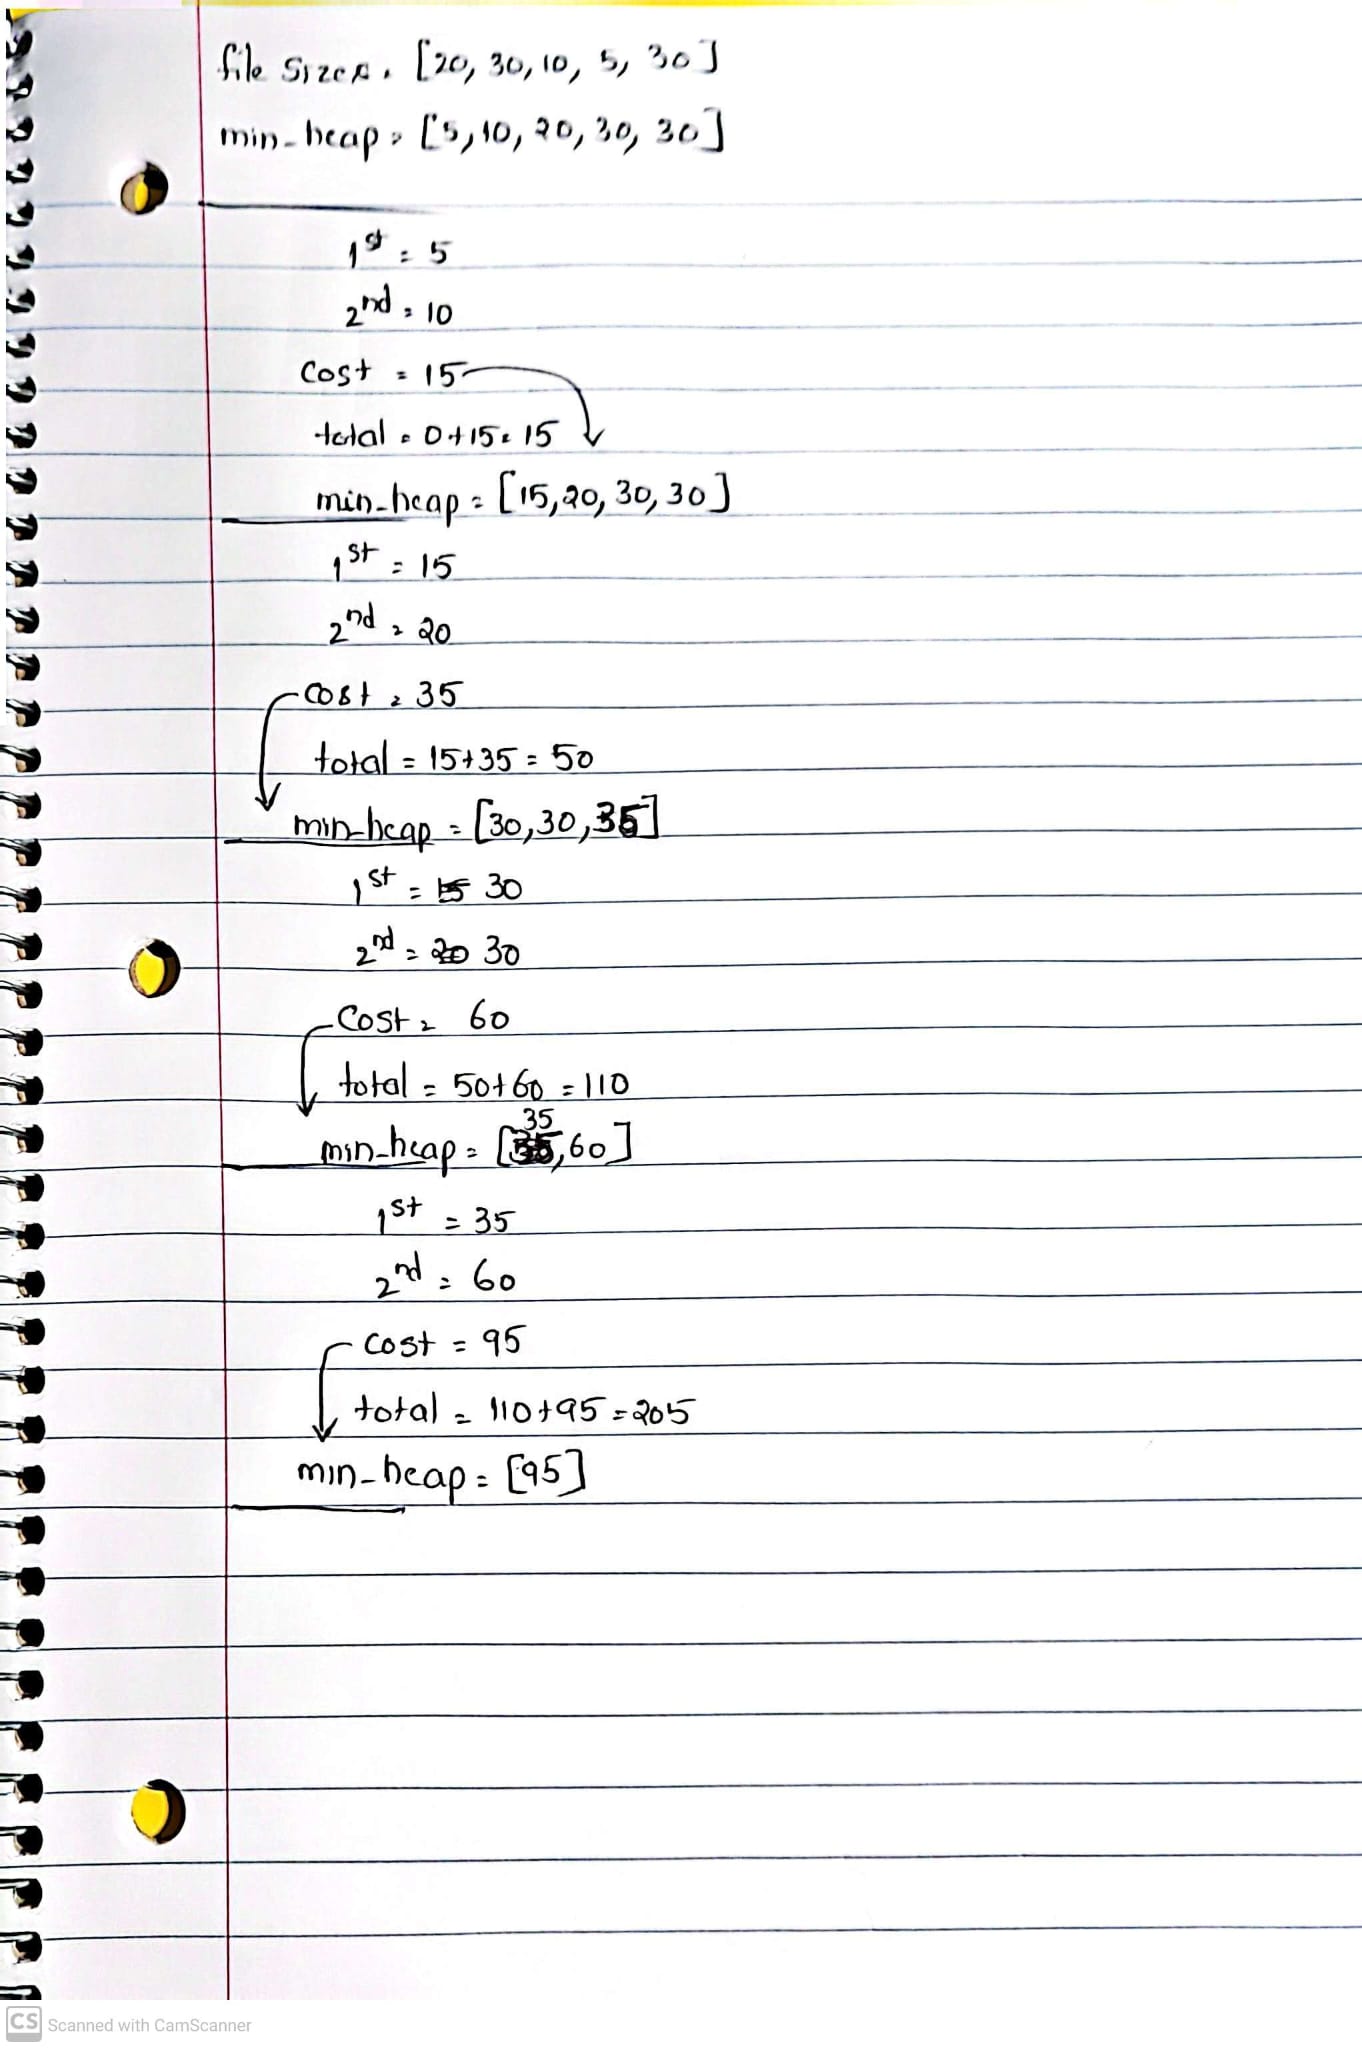 file sizes = [20, 30, 10, 5, 30]
min-heap = [5, 10, 20, 30, 30]
1st = 5
2nd = 10
Cost = 15
total = 0+15 = 15
min-heap = [15, 20, 30, 30]
1st = 15
2nd = 20
Cost = 35
total = 15+35 = 50
min-heap = [30, 30, 35]
1st = 15 30
2nd = 20 30
Cost = 60
total = 50+60 = 110
35
min-heap = [, 60]
1st = 35
2nd = 60
Cost = 95
total = 110+95 = 205
min-heap = [95]
CS Scanned with CamScanner